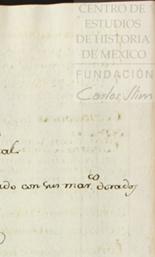 CENTRO DE
ESTUDIOS
DE HISTORIA
DE MEXICO
FUNDACIÓN
Carlos Slim
al
ado con sus mar.co dorados